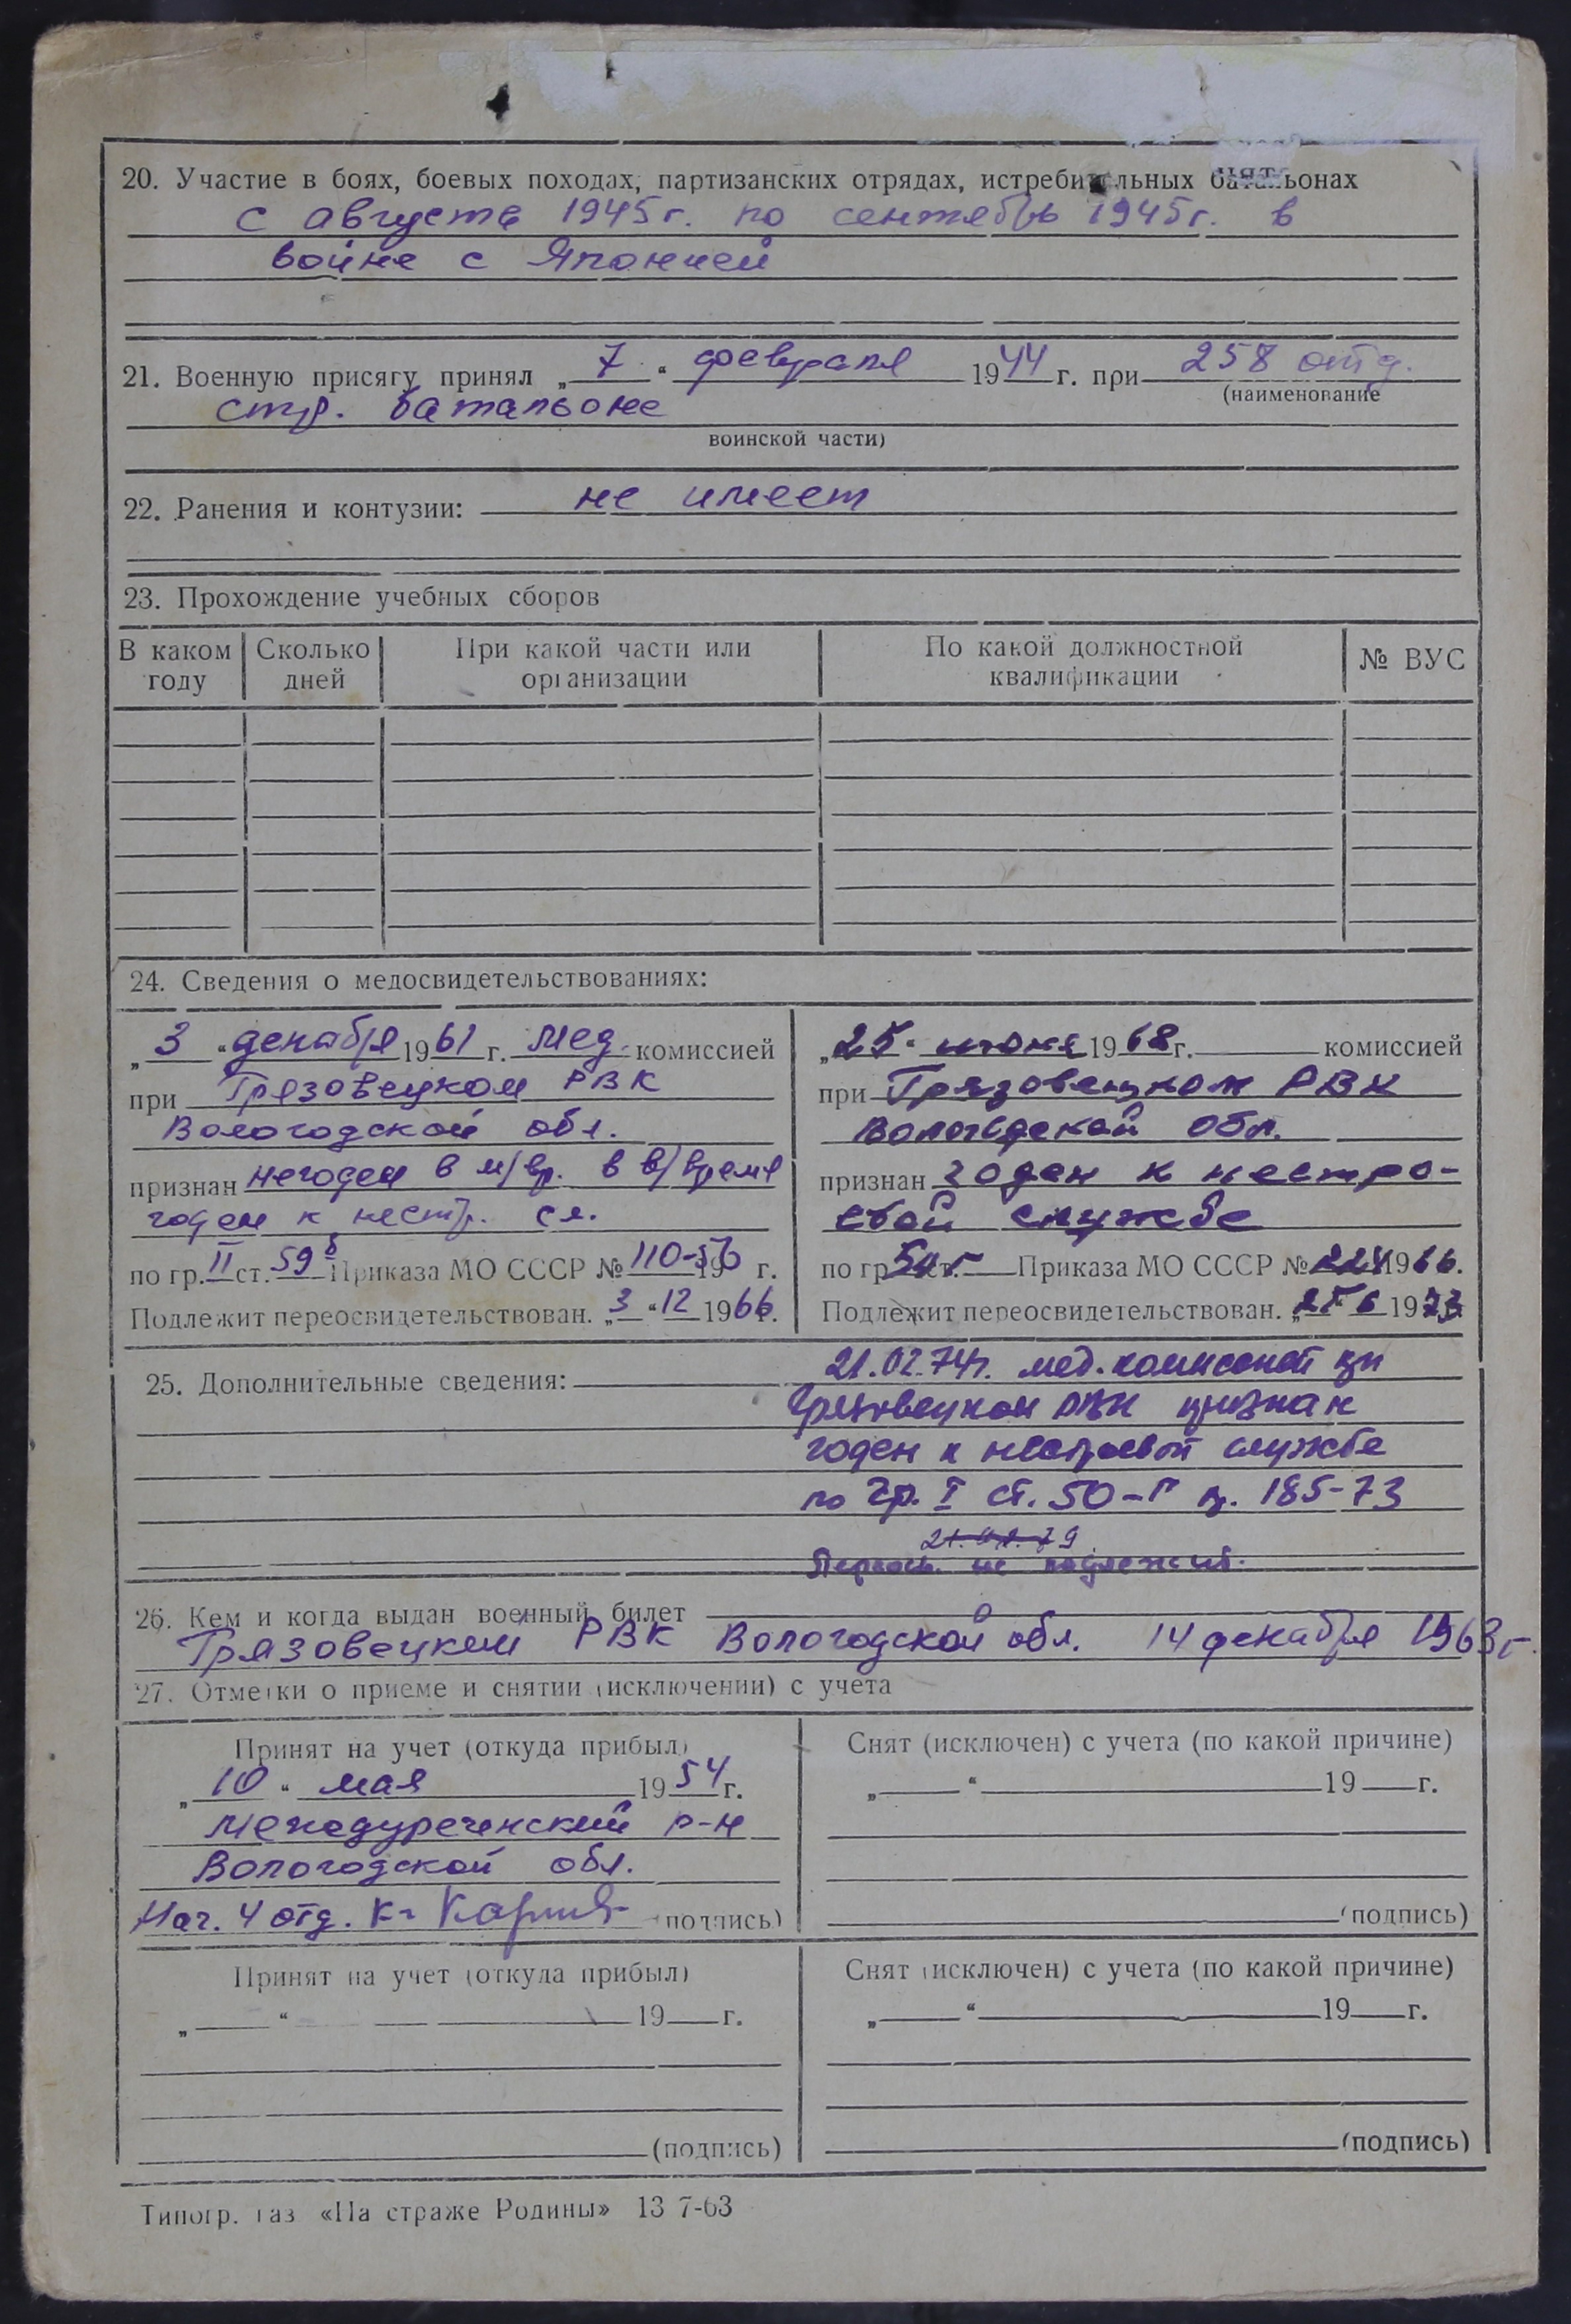 20. Участие в боях, боевых походах, партизанских отрядах, истребительных батальонах
с августа 1945г. по сентябрь 1945г. в
войне с Японией
21. Военную присягу принял „7“ февраля 1944 г. при 258 отд.
(наименование
стр. батальоне
воинской части)
22. Ранения и контузии: не имеет
23. Прохождение учебных сборов
В каком году Сколько дней При какой части или организации По какой должностной квалификации № ВУС
24. Сведения о медосвидетельствованиях:
„3“ декабря 1961 г. мед. комиссией
при Грязовецком РВК
Вологодской обл.
признан негоден в м/вр. в в/время
годен к нестр. сл.
по гр. II ст. 59б Приказа МО СССР № 110-56 г.
Подлежит переосвидетельствован. „3“ 12 1966г.
„25“ июня 1968г. комиссией
при Грязовецком РВК
Вологодской обл.
признан годен к нестро-
евой службе
по гр ст. Приказа МО СССР № 1966.
Подлежит переосвидетельствован. „25 6 1973
25. Дополнительные сведения:
21.02.74г. мед. комиссией при
Грязовецком РВК признан
годен к нестроевой службе
по гр. I ст. 50-Г п. 185-73
Переосв. не подлежит.
26. Кем и когда выдан военный билет
Грязовецким РВК Вологодской обл. 14 декабря 1963г.
27. Отметки о приеме и снятии (исключении) с учета
Принят на учет (откуда прибыл)
„10“ мая 1954г.
Междуреченский р-н
Вологодской обл.
Нач. 4 отд. к-н (подпись)
Снят (исключен) с учета (по какой причине)
„ “ 19 г.
(подпись)
Принят на учет (откуда прибыл)
„ “ 19 г.
(подпись)
Снят (исключен) с учета (по какой причине)
„ “ 19 г.
(подпись)
Типогр. газ «На страже Родины» 13 7-63